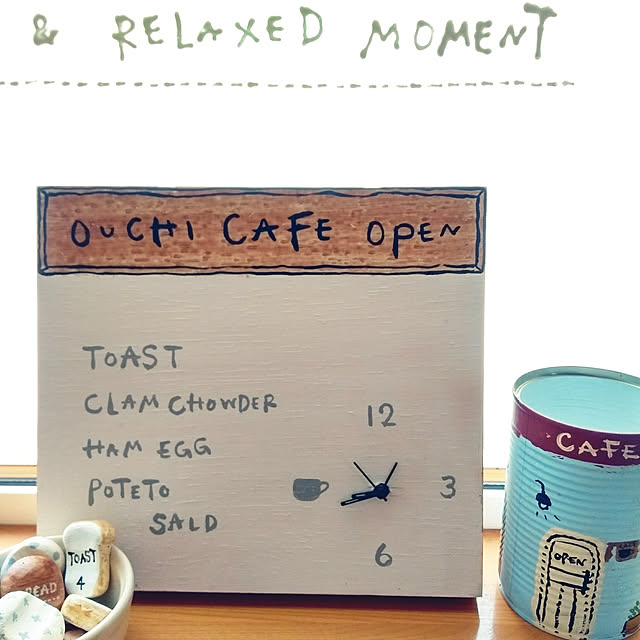 & RELAXED MOMENT
OUCHI CAFE OPEN
TOAST
CLAM CHOWDER
HAM EGG
POTETO
SALD
12
3
6
CAFE
OPEN
TOAST
4